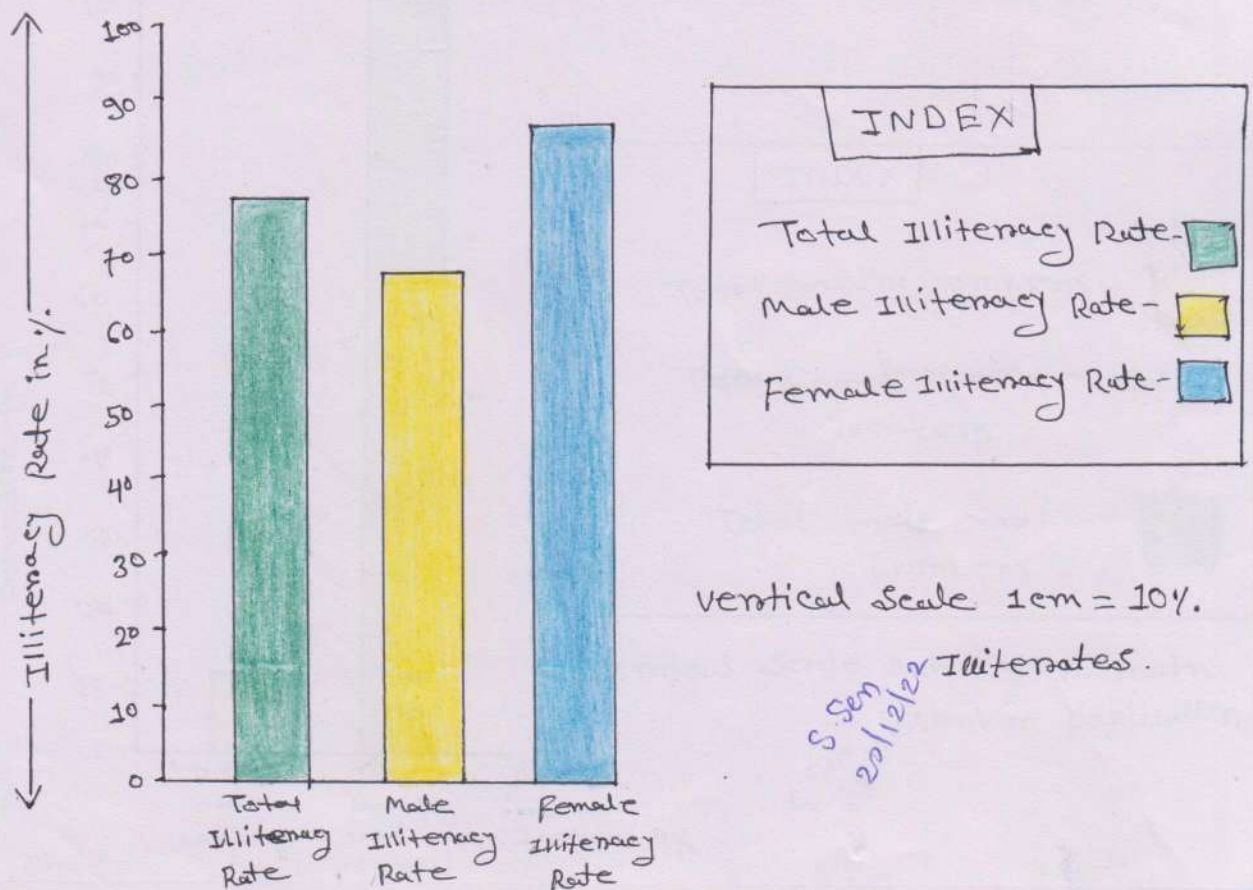 Illiteracy Rate in %.
100
90
80
70
60
50
40
30
20
10
0
Total
Illiteracy
Rate
Male
Illiteracy
Rate
Female
Illiteracy
Rate
INDEX
Total Illiteracy Rate-
Male Illiteracy Rate-
Female Illiteracy Rate-
Vertical Scale 1cm = 10%.
Illiterates.
S Sen
20/12/22